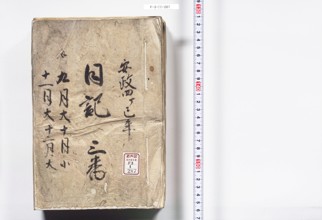 安政四丁巳年
日記 三番
九月大十月小
十一月大十二月大